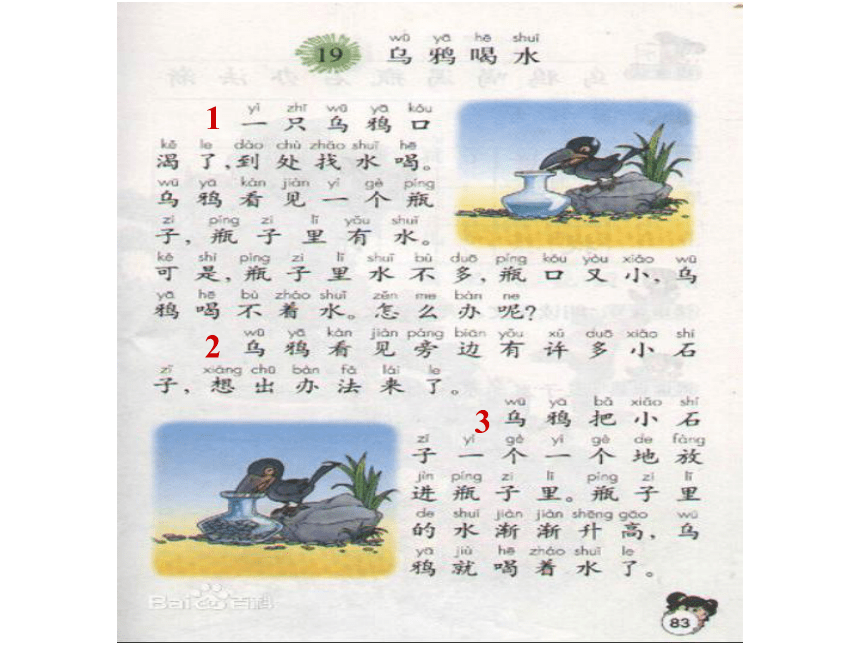 wū yā hē shuǐ
19 乌鸦喝水
yì zhī wū yā kǒu
1 一只乌鸦口
kě le dào chù zhǎo shuǐ hē
渴了,到处找水喝。
wū yā kàn jiàn yí gè píng
乌鸦看见一个瓶
zi píng zi lǐ yǒu shuǐ
子,瓶子里有水。
kě shì píng zi lǐ shuǐ bù duō píng kǒu yòu xiǎo wū
可是,瓶子里水不多,瓶口又小,乌
yā hē bù zháo shuǐ zěn me bàn ne
鸦喝不着水。怎么办呢?
wū yā kàn jiàn páng biān yǒu xǔ duō xiǎo shí
2 乌鸦看见旁边有许多小石
zǐ xiǎng chū bàn fǎ lái le
子,想出办法来了。
wū yā bǎ xiǎo shí
3 乌鸦把小石
zǐ yí gè yí gè de fàng
子一个一个地放
jìn píng zi lǐ píng zi lǐ
进瓶子里。瓶子里
de shuǐ jiàn jiàn shēng gāo wū
的水渐渐升高,乌
yā jiù hē zháo shuǐ le
鸦就喝着水了。
Baidu百科
83